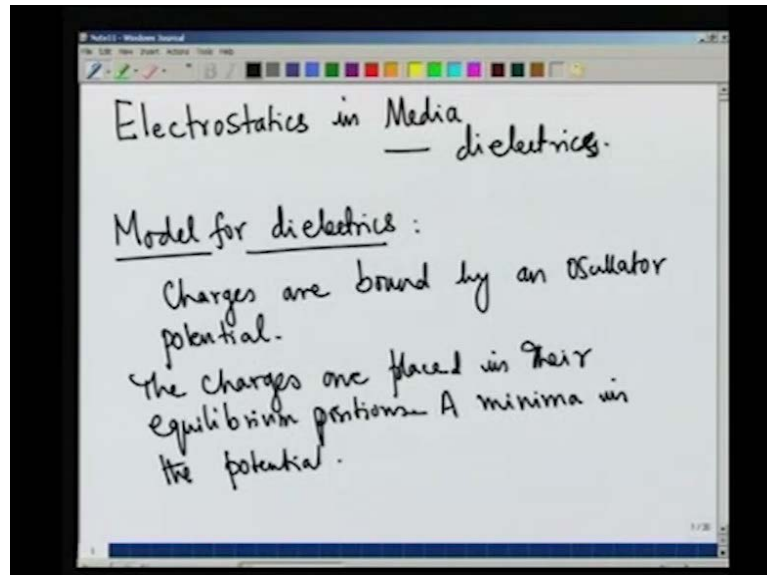 Note11 - Windows Journal
File Edit View Insert Actions Tools Help
Electrostatics in Media
dielectrics.
Model for dielectrics :
Charges are bound by an oscillator
potential.
The charges are placed in their
equilibrium positions. A minima in
the potential.